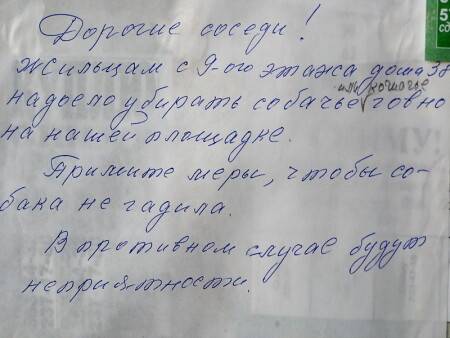 Дорогие соседи!
Жильцам с 9-ого этажа дома 38
или кошачье
надоело убирать собачье говно
на нашей площадке.
Примите меры, чтобы со-
бака не гадила.
В противном случае будут
неприятности.